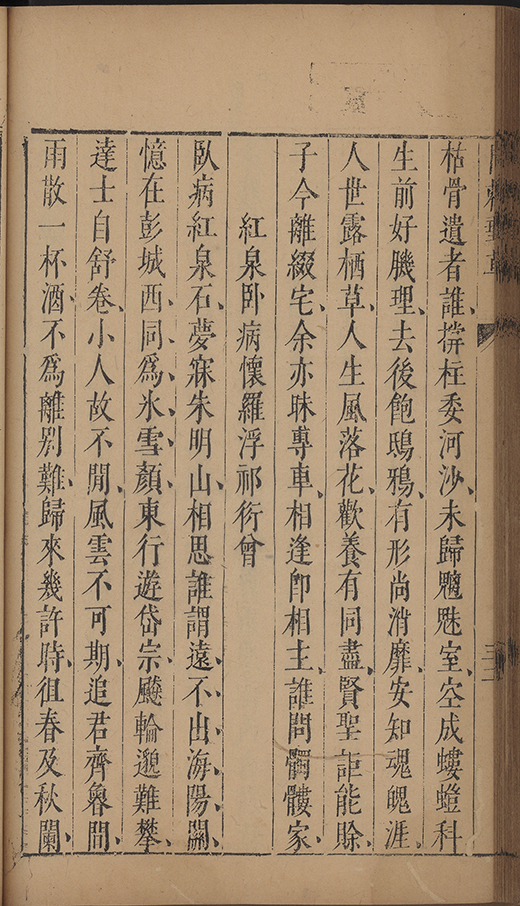 枯骨遺者誰、摒柱委河沙、未歸魑魅室、空成螻螘科
生前好理、去後飽鴟鴉、有形尚消靡、安知魂魄涯、
人世露栖草、人生風落花、歡養有同盡、賢聖詎能賒、
子今離綴宅、余亦昧專車、相逢卽相主、誰問髑髏家、
紅泉卧病懷羅浮祁衍曾
臥病紅泉石、夢寐朱明山、相思誰謂遠、不出海陽關、
憶在彭城西、同爲氷雪顏、東行遊岱宗、飈輪邈難攀、
達士自舒卷、小人故不閒、風雲不可期、追君齊魯間、
雨散一杯酒、不爲離別難、歸來幾許時、徂春及秋闌、